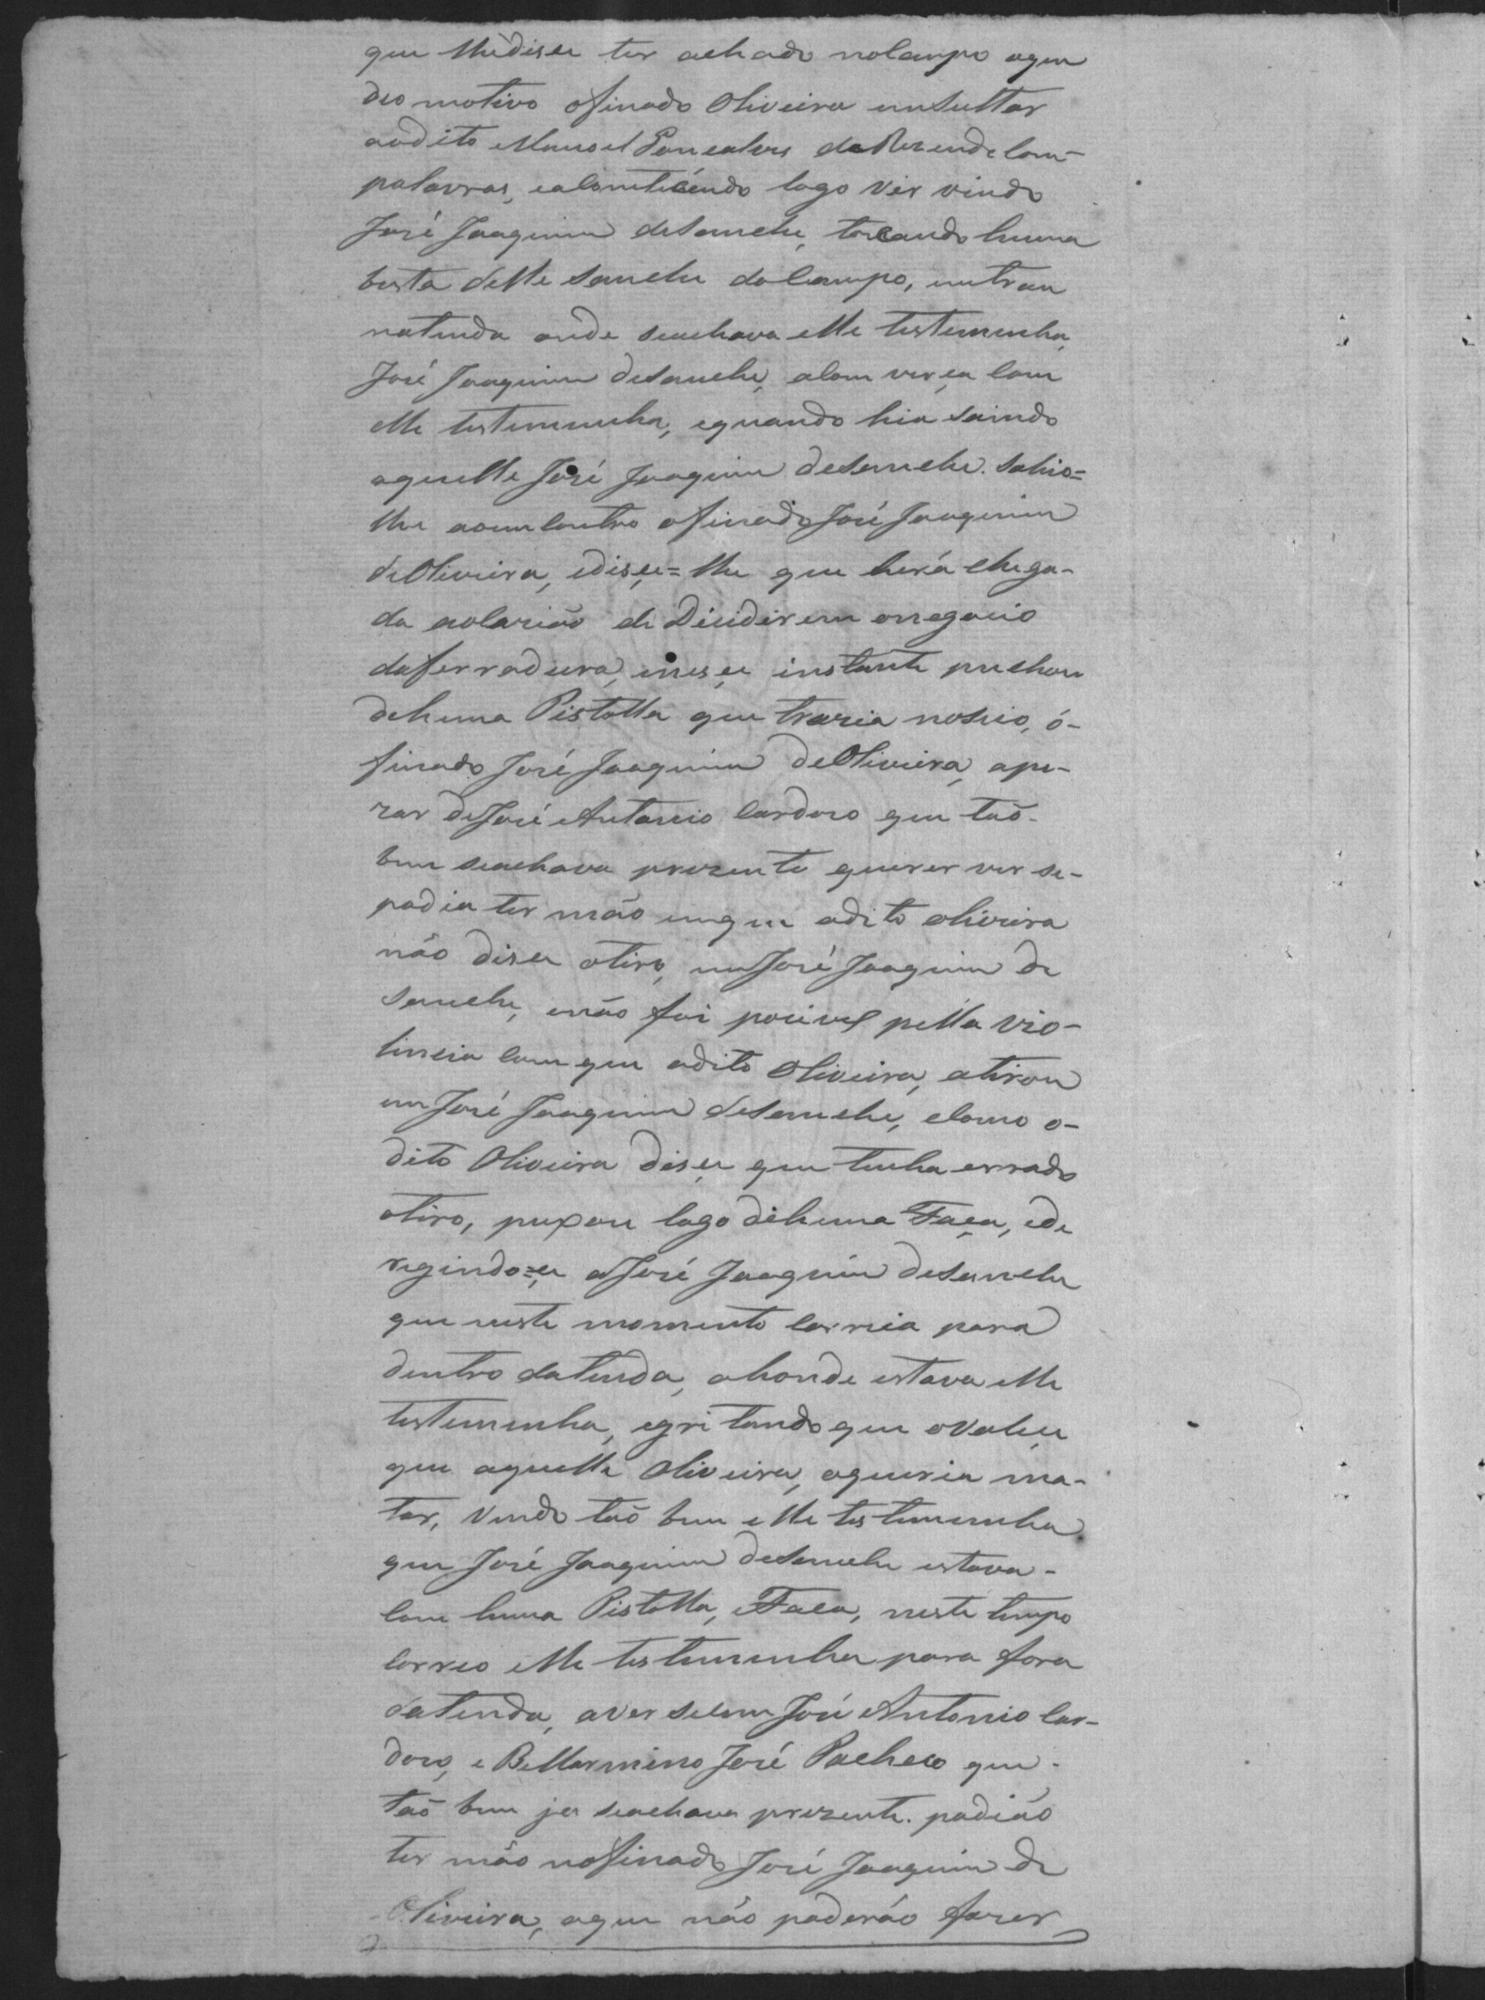 que lhe disse ter achado no Campo o que
deo motivo o finado Oliveira insultar
ao dito Manoel Goncalves de Rezende Com
palavras, e acontecendo logo ver vindo
José Joaquim de Sanche, tocando huma
besta delle Sanche do Campo, entrou
na tenda onde se achava elle testemunha,
José Joaquim de Sanche, a Conversa Com
elle testemunha, e quando hia saindo
aquelle José Joaquim de Sanche. Sahio=
lhe ao encontro o finado José Joaquim
de Oliveira, e disse=lhe que herá chega-
da a ocazião de Dicidirem o negocio
da ferradura, e nesse instante puchou
de huma Pistolla que trazia no seio, ó-
finado José Joaquim de Oliveira, ape-
zar de José Antonio Cardozo que tão-
bem se achava prezente querer ver se-
podia ter mão em que o dito Oliveira
não disse o tiro, em José Joaquim de
Sanche, e não foi pocivel pella vio-
lincia Com que o dito Oliveira, atirou
em José Joaquim de Sanche, e Como o-
dito Oliveira disse que tinha errado
o tiro, puxou logo de huma Faca, e de
regindo=se a José Joaquim de Sanche
que neste momento Corria para
dentro da tenda, ahonde estava elle
testemunha, e gritando que o Valese
que aquelle Oliveira, o queria ma-
tar, Vendo tão bem elle testemunha
que José Joaquim de Sanche estava-
Com huma Pistolla, e Faca, neste tempo
Correo elle testemunha para fora
da tenda, a ver se Com José Antonio Car-
dozo, e Bellarmino José Pacheco que-
tão bem ja se achava prezente. podião
ter mão no finado José Joaquim de
Oliveira, o que não poderão fazer